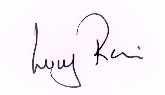 Lucy Rai